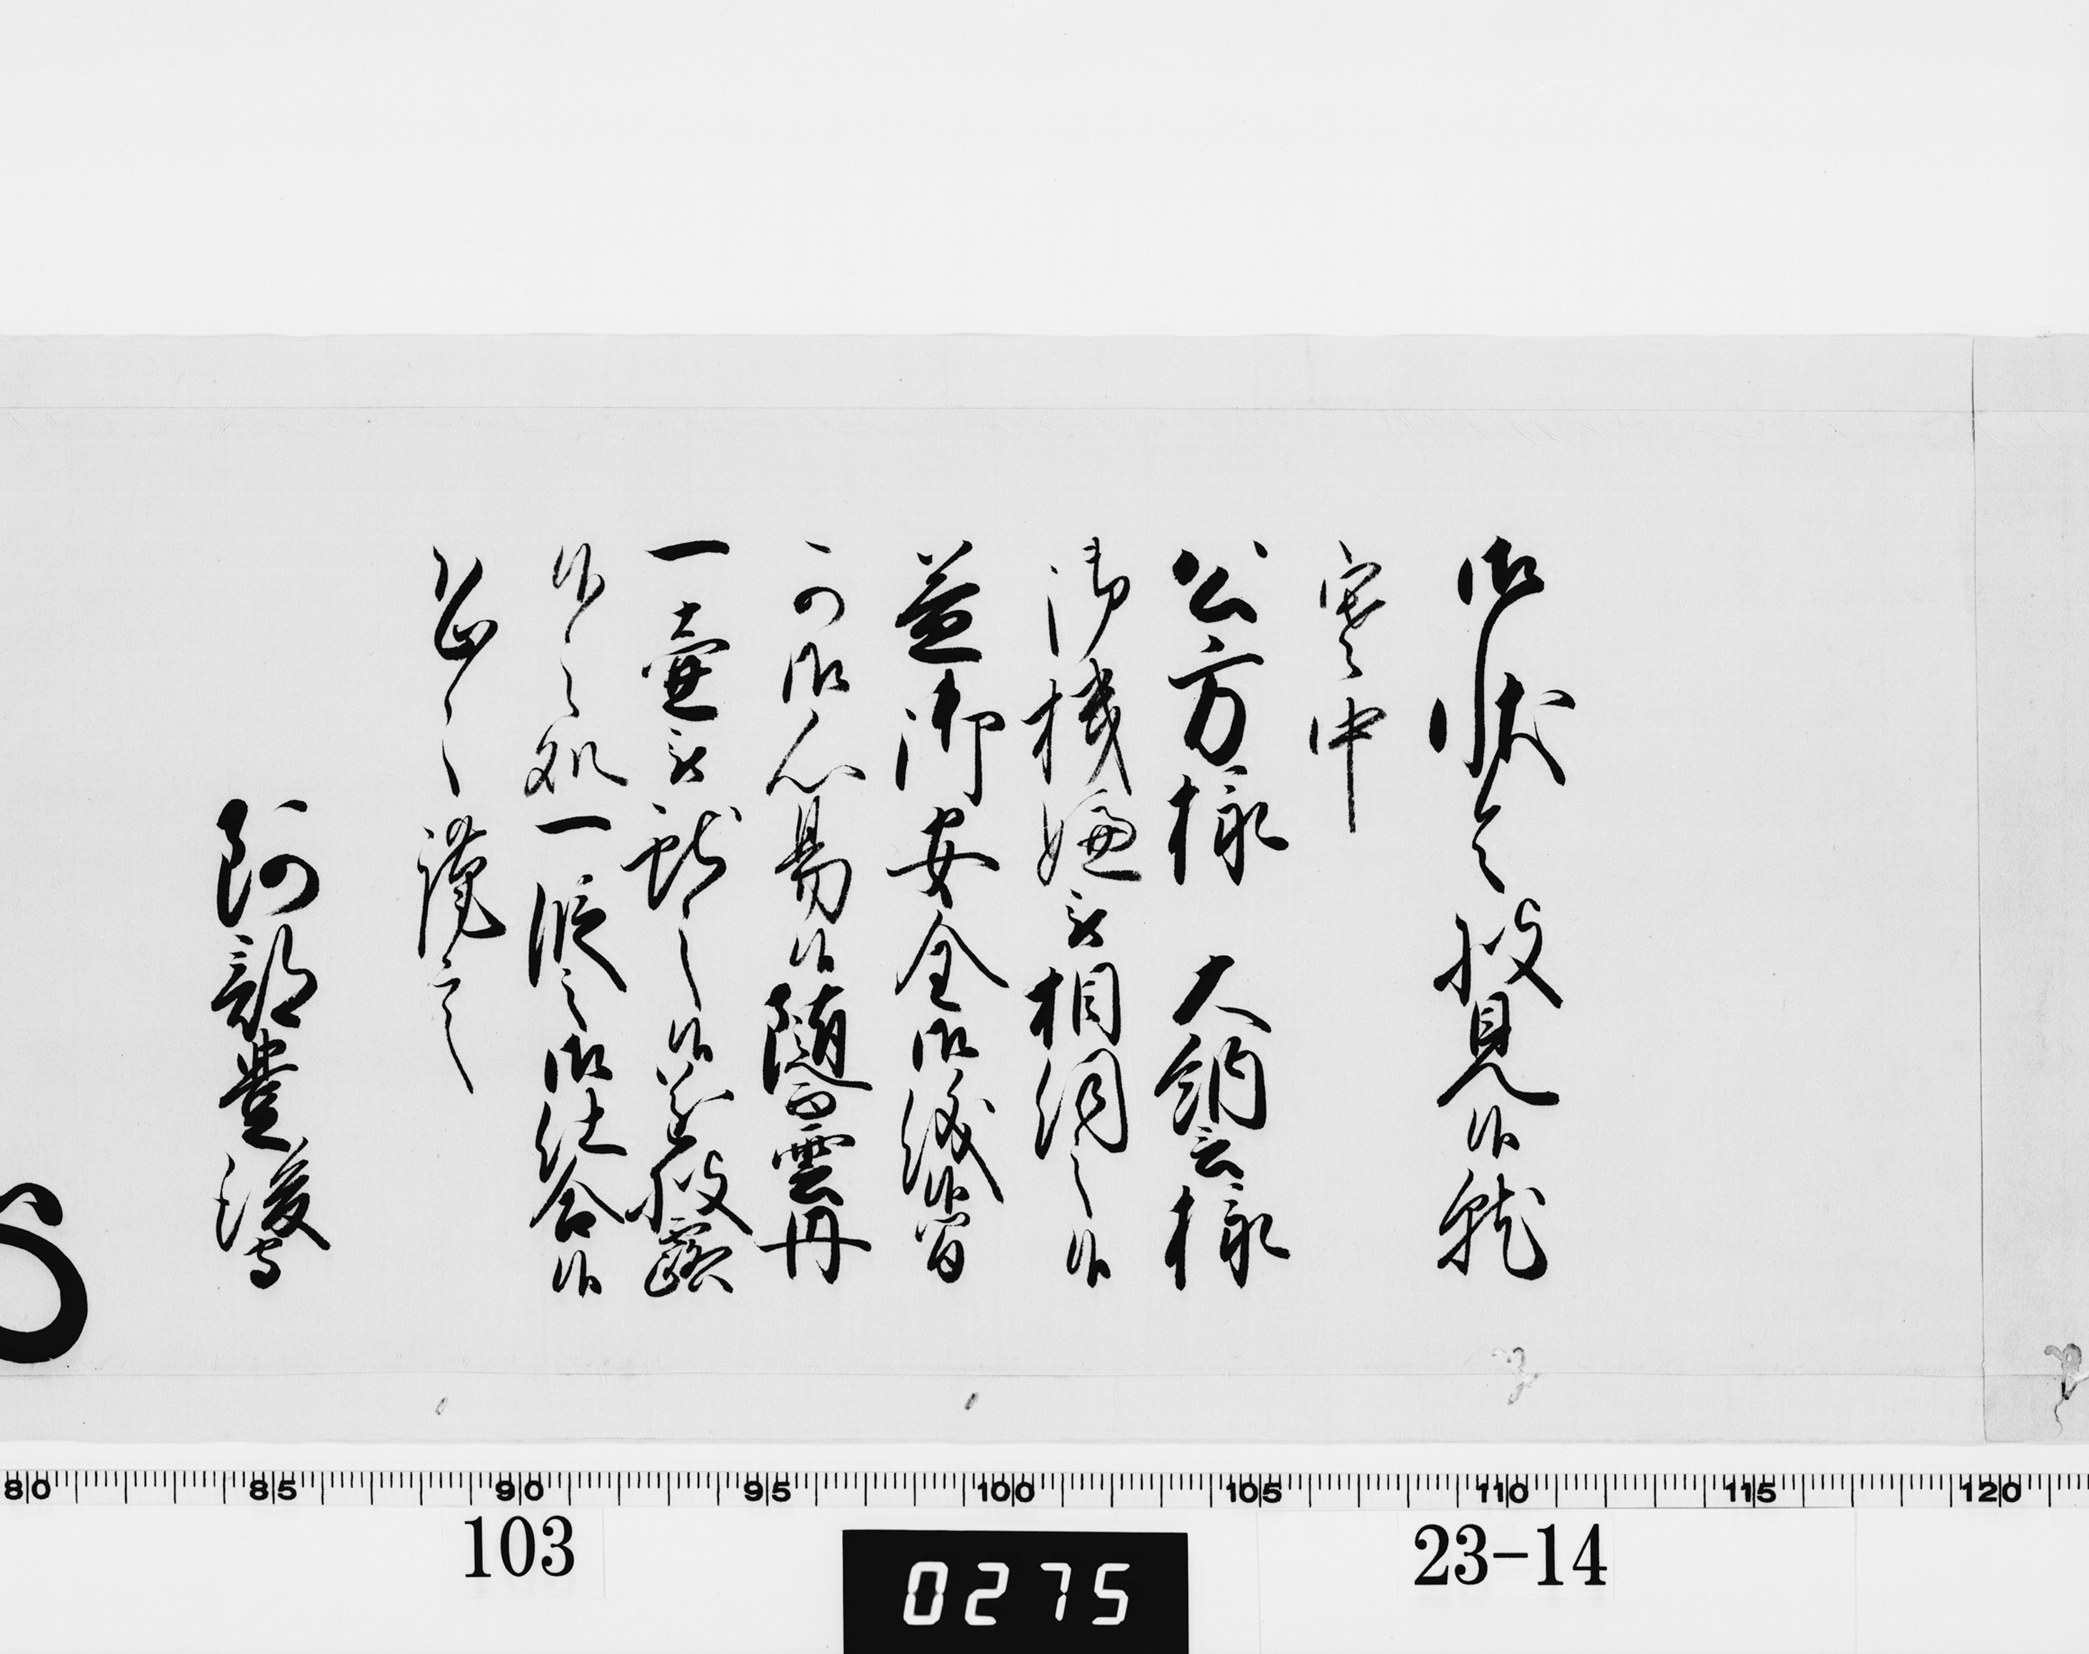 御状令披見候就
寒中
公方様　大納言様
御機嫌被相伺之候
益御安全御儀候間
可御心易候随而雲丹
一壺被献之候遂披露
候之処一段之御仕合候
恐々謹言
阿部豊後守
80 85 90 95 100 105 110 115 120
103
0275
23-14